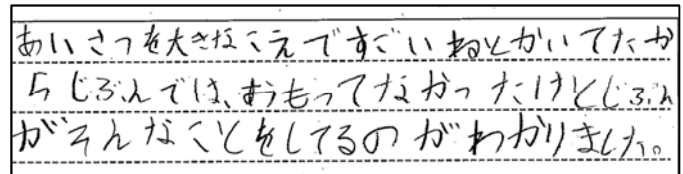 あいさつを大きなこえですごいねとかいてたか
らじぶんでは、おもってなかったけとじぶん
がそんなことをしてるのがわかりました。